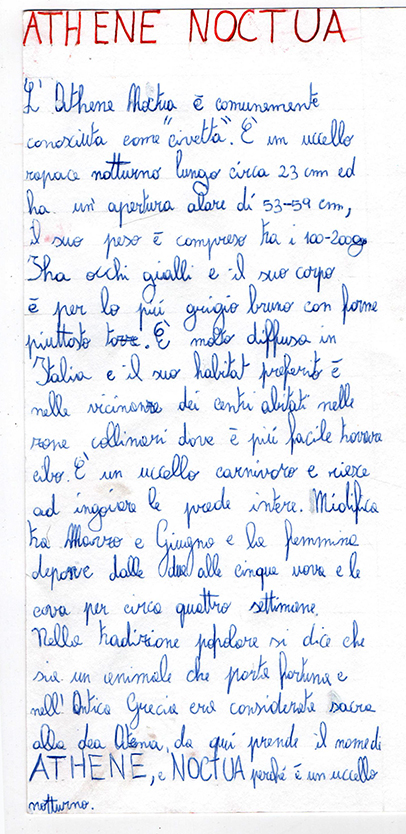 ATHENE NOCTUA
L' Athene Noctua è comunemente
conosciuta come "civetta". È un uccello
rapace notturno lungo circa 23 cm ed
ha un' apertura alare di 53-59 cm,
il suo peso è compreso tra i 100-200g
Iha occhi gialli e il suo corpo
è per lo più grigio bruno con forme
piuttosto tozze. È molto diffusa in
Italia e il suo habitat preferito è
nelle vicinanze dei centri abitati nelle
zone collinari dove è più facile trovare
cibo. È un uccello carnivoro e riesce
ad ingoiare le prede intere. Nidifica
tra Marzo e Giugno e la femmina
depone dalle due alle cinque uova e le
cova per circa quattro settimane.
Nella tradizione popolare si dice che
sia un animale che porta fortuna e
nell' Antica Grecia era considerata sacra
alla dea Atena, da qui prende il nome di
ATHENE, e NOCTUA perché è un uccello
notturno.